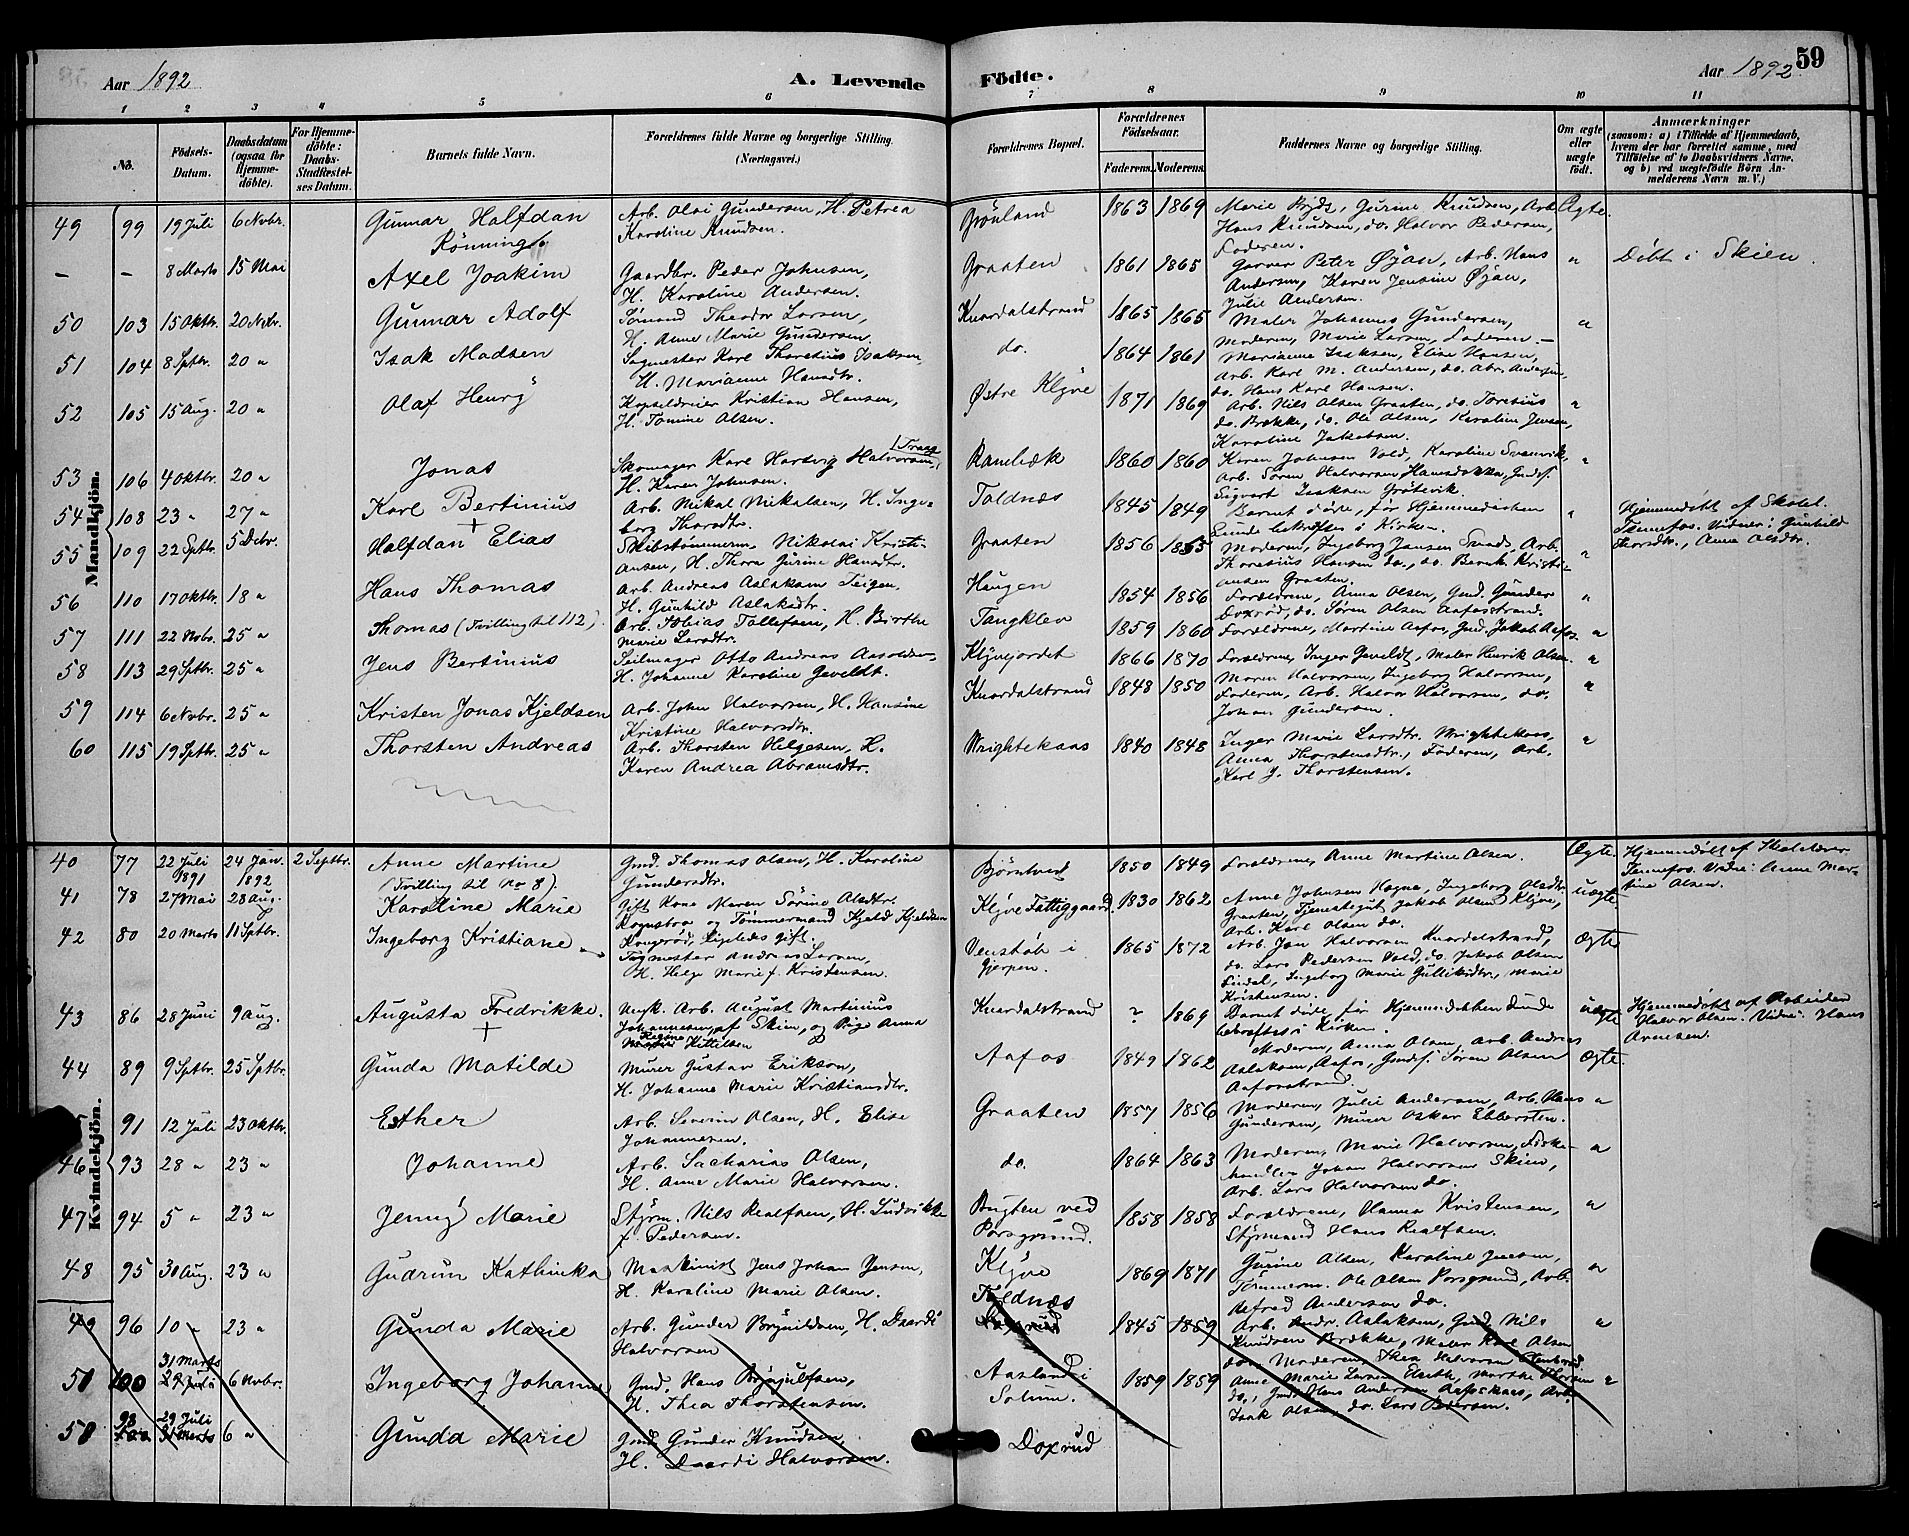 Aar 1892
A. Levende Födte.
Aar 1892
59
1 2 3 4 5 6 7 8 9 10 11
No.
Födsels-Datum.
Daabsdatum (ogsaa for Hjemmedöbte).
For Hjemmedöbte: Daabs-Stadfæstelses Datum.
Barnets fulde Navn.
Forældrenes fulde Navne og borgerlige Stilling. (Næringsvei.)
Forældrenes Bopæl.
Forældrenes Födselsaar.
Faderens. Moderens.
Faddernes Navne og borgerlige Stilling.
Om ægte eller uægte födt.
Anmærkninger (saasom: a) i Tilfælde af Hjemmedaab, hvem der har forrettet samme, med Tilföielse af to Daabsvidners Navne, og b) ved uægtefödte Börn Anmelderens Navn m. V.)
Mandkjön.
49 99 19 Juli 6 Novbr. Gunnar Halfdan Rönning Arb. Olai Gundersen, H. Petrea Karoline Knudsen. Grönland 1863 1869 Marie Gurine Knudsen, Arb. Hans Knudsen, do. Halvor Pedersen, Faderen. Ægte.
– – 8 Marts 15 Mai Axel Joakim Gaardbr. Peder Johnsen, H. Karoline Andersen. Graaten 1861 1865 Garver Peter Øyan, Arb. Hans Andersen, Karen Jensine Øyan, Julie Andersen. " Döbt i Skien.
50 103 15 Oktbr. 20 Novbr. Gunnar Adolf Sömand Theodor Larsen, H. Anne Marie Gundersen. Knardalstrand 1865 1865 Maler Johannes Gundersen, Moderen, Marie Larsen, Faderen. – "
51 104 8 Septbr. 20 " Isak Madsen Sagmester Karl Thoretius Isaksen, H. Marianne Hansdtr. do. 1864 1861 Marianne Isaksen, Elise Hansen, Arb. Karl M. Andersen, do. Abr. Andersen, do. Hans Karl Hansen.
52 105 15 Aug. 20 " Olaf Henry Kristian Hansen, H. Tomine Olsen. Østre Klyve 1871 1869 Arb. Nils Olsen Graaten, do. Toresius do. Brække, do. Ole Olsen, Karoline Jensen, Karoline Jakobsen. "
53 106 4 Oktbr. 20 " Jonas Skomager Karl Hartvig Halvorsen, H. Karen Johnsen. 1860 1860 Karen Johnsen Vold, Karoline Arb. Sören Halvorsen Gmdsf. Sigvart Isaksen Grötsvik. "
54 108 23 " 27 " Karl Bertinius + Arb. Mikal Mikalsen, H. Ingeborg Thorsdtr. Toldnæs 1845 1849 Barnet döde, för Hjemmedaaben kunde bekræftes i Kirken. " Hjemmedöbt af Skolel. Tennefos. Vidner: Gunhild Thorsdtr., Anna Olsdtr.
55 109 22 Septbr. 5 Debr. Halfdan Elias Skibstömmerm. Nikolai Kristiansen, H. Thora Gurine Hansdtr. Graaten 1856 1855 Moderen, Ingeborg Jansen Arb. Thoresius Hansen do., do. Bernh. Kristiansen Graaten. "
56 110 17 Oktbr. 18 " Hans Thomas Arb. Andreas Aslaksen Teigen, H. Gunhild Aslaksdtr. Haugen 1854 1856 Forældrene, Anna Olsen, Gmd. Gunder Doxrød, do. Søren Olsen Aafosstrand. "
57 111 22 Novbr. 25 " Thomas (Tvilling til 112). Arb. Tobias Tollefsen, H. Birthe Marie Larsdtr. Tangklev 1859 1860 Forældrene, Martine Aafos, Gmd. Jakob Aafos. "
58 113 29 Septbr. 25 " Jens Bertinius Seilmager Otto Andreas H. Johanne Karoline Geveldt. Klyvejordet 1866 1870 Forældrene, Inger Geveldt, Maler Henrik Olsen. "
59 114 6 Novbr. 25 " Kristen Jonas Kjeldsen Arb. John Halvorsen, H. Hansine Kristine Halvorsdtr. Knardalstrand 1848 1850 Maren Halvorsen, Ingeborg Halvorsen, Faderen, Arb. Halvor Halvorsen, do. Johan Gundersen. "
60 115 19 Septbr. 25 " Thorsten Andreas Arb. Thorsten Helgesen, H. Karen Andrea Abramsdtr. Wrightekaas 1840 1848 Inger Marie Larsdtr. Wrightekaas, Anna Thorstensdtr., Faderen, Arb. Karl J. Thorstensen. "
Kvindekjön.
40 77 22 Juli 1891 24 Jan. 1892 2 Septbr. Anne Martine (Tvilling til No 8). Gmd. Thomas Olsen, H. Karoline Gundersdtr. Bjørntvedt 1850 1849 Forældrene, Anne Martine Olsen. Ægte. Hjemmedöbt af Skolelærer Tennefos. Vidne: Anne Martine Olsen.
41 78 27 Mai 28 Aug. Karoline Marie Gift Kone Maren Sörine Olsdtr. og Tömmermand Kjeld Kjeldsen ligeledes gift. Klyve Fattiggaard 1830 1862 Anne Johnsen Ingeborg Olsdtr. Graaten, Tjenestegut Jakob Olsen Klyve, Arb. Karl Olsen do. uægte.
42 80 20 Marts 11 Septbr. Ingeborg Kristiane Andreas Larsen, H. Helge Marie f. Kristensen. Venstöb i Gjerpen. 1865 1872 Arb. Jan Halvorsen Knardalstrand, do. Lars Pedersen Vold, do. Jakob Olsen Lindal, Ingeborg Marie Gulliksdtr., Marie Kristensen. Ægte
43 86 28 Juni 9 Aug. Augusta Fredrikke. + Ungk. Arb. August Martinius Johannesen, af Skien, og Pige Anna Regine Kittelsen Knardalstrand ? 1869 Barnet döde, för Hjemmedaaben kunde bekræftes i Kirken. uægte Hjemmedöbt af Arbeider Halvor Olsen. Vidne: Hans Arnesen.
44 89 9 Septbr. 25 Septbr. Gunda Matilde Murer Gustav Erikson, H. Johanne Marie Kristiansdtr. Aafos 1849 1862 Moderen, Anna Olsen, Arb. Andreas Aslaksen, Aafos, Gmdsf. Søren Olsen Aafosstrand. Ægte.
91 12 Juli 23 Oktbr. Esther Arb. Severin Olsen, H. Elise Johannesen. Graaten 1857 1856 Moderen, Julie Andersen, Arb. Hans Gundersen, Murer Oskar Ebbersten. "
46 93 28 " 23 " Johanne Arb. Sacharias Olsen, H. Anne Marie Halvorsen. do. 1864 1863 Moderen, Marie Halvorsen, Fiskehandler Johan Halvorsen Skien, Arb. Lars Halvorsen do. "
47 94 5 " 23 " Jenny Marie Styrm. Nils Realfsen, H. Ludvikke f. Pedersen. Bugten ved Porsgrund. 1858 1858 Forældrene, Hanna Kristensen, Styrmand Hans Realfsen. "
48 95 30 Aug. 23 " Gudrun Kathinka Maskinist Jens Johan Jensen, H. Karoline Marie Olsen. Klyve 1869 1871 Gurine Olsen, Karoline Jensen, Tömmerm. Ole Olsen Porsgrund, Arb. Alfred Andersen do. "
49 96 10 " 23 " Gunda Marie Arb. Gunder Brynildsen, H. Daardi Halvorsen Toldnæs 1845 1859 Arb. Andr. Aslaksen, Gmd. Nils Knudsen Brække, Maler Karl Olsen do., Moderen, Thea Halvorsen "
50 100 31 Marts 6 Novbr. Ingeborg Johanne Gmd. Hans Brynjulfsen, H. Thea Thorstensen. Aasland i Solum. 1859 1859 Anne Marie Larsen Marthe Thorsen do., Gmd. Hans Andersen Aafoskaas, Arb. Isak Olsen, do. Lars Pedersen. "
50 98 29 Juli 31 Marts 6 " Gunda Marie Gmd. Gunder Knudsen, H. Daardi Halvorsen. Doxrud